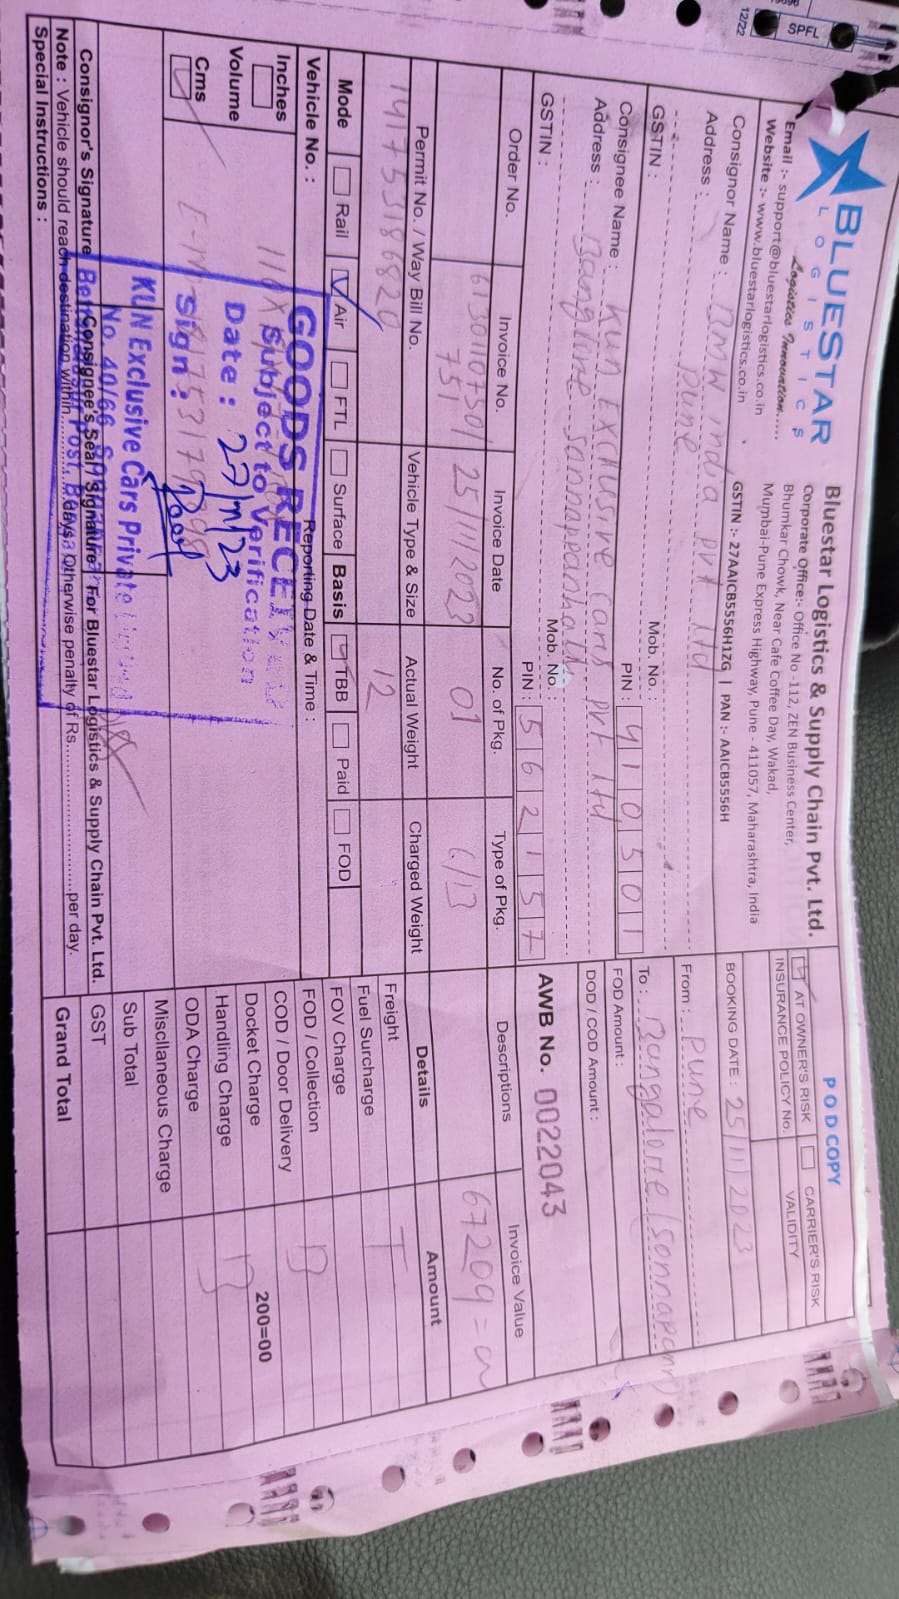 SPFL
12/22
BLUESTAR
LOGISTICS
Logistics Innovation.....
Email :- support@bluestarlogistics.co.in
Website :- www.bluestarlogistics.co.in
Bluestar Logistics & Supply Chain Pvt. Ltd.
Corporate Office:- Office No -112, ZEN Business Center,
Bhumkar Chowk, Near Cafe Coffee Day, Wakad,
Mumbai-Pune Express Highway, Pune - 411057, Maharashtra, India
GSTIN :- 27AAICB5556H1ZG | PAN :- AAICB5556H
POD COPY
AT OWNER'S RISK CARRIER'S RISK
INSURANCE POLICY No. VALIDITY
BOOKING DATE : 25/11/2023
Consignor Name : BMW india pvt ltd
Address : Pune
GSTIN : Mob. No. : PIN 410501
From : Pune
To : Bangalore (Sonnapanh
Consignee Name : Kun Exclusive Cars pvt ltd
Address : Bangalore Sonnappanhalli
GSTIN : Mob. No. : PIN 562157
FOD Amount :
DOD / COD Amount :
AWB No. 0022043
Order No. Invoice No. Invoice Date No. of Pkg. Type of Pkg. Descriptions Invoice Value
6130110750/ 25/11/2023 01 C/B 67209=
751
Permit No. / Way Bill No. Vehicle Type & Size Actual Weight Charged Weight Details Amount
141753186820 12
Mode Rail Air FTL Surface Basis TBB Paid FOD
Vehicle No. : Reporting Date & Time :
Inches
Volume
Cms
GOODS RECEIVED
Subject to Verification
Date : 27/11/23
Sign :
KUN Exclusive Cars Private Limited
No. 40/66
Freight
Fuel Surcharge
FOV Charge
FOD / Collection
COD / Door Delivery
Docket Charge 200=00
Handling Charge
ODA Charge
Miscllaneous Charge
Sub Total
GST
Grand Total
Consignor's Signature Consignee's Seal / Signature For Bluestar Logistics & Supply Chain Pvt. Ltd.
Note : Vehicle should reach destination within............days. Otherwise penalty of Rs........................per day.
Special Instructions :